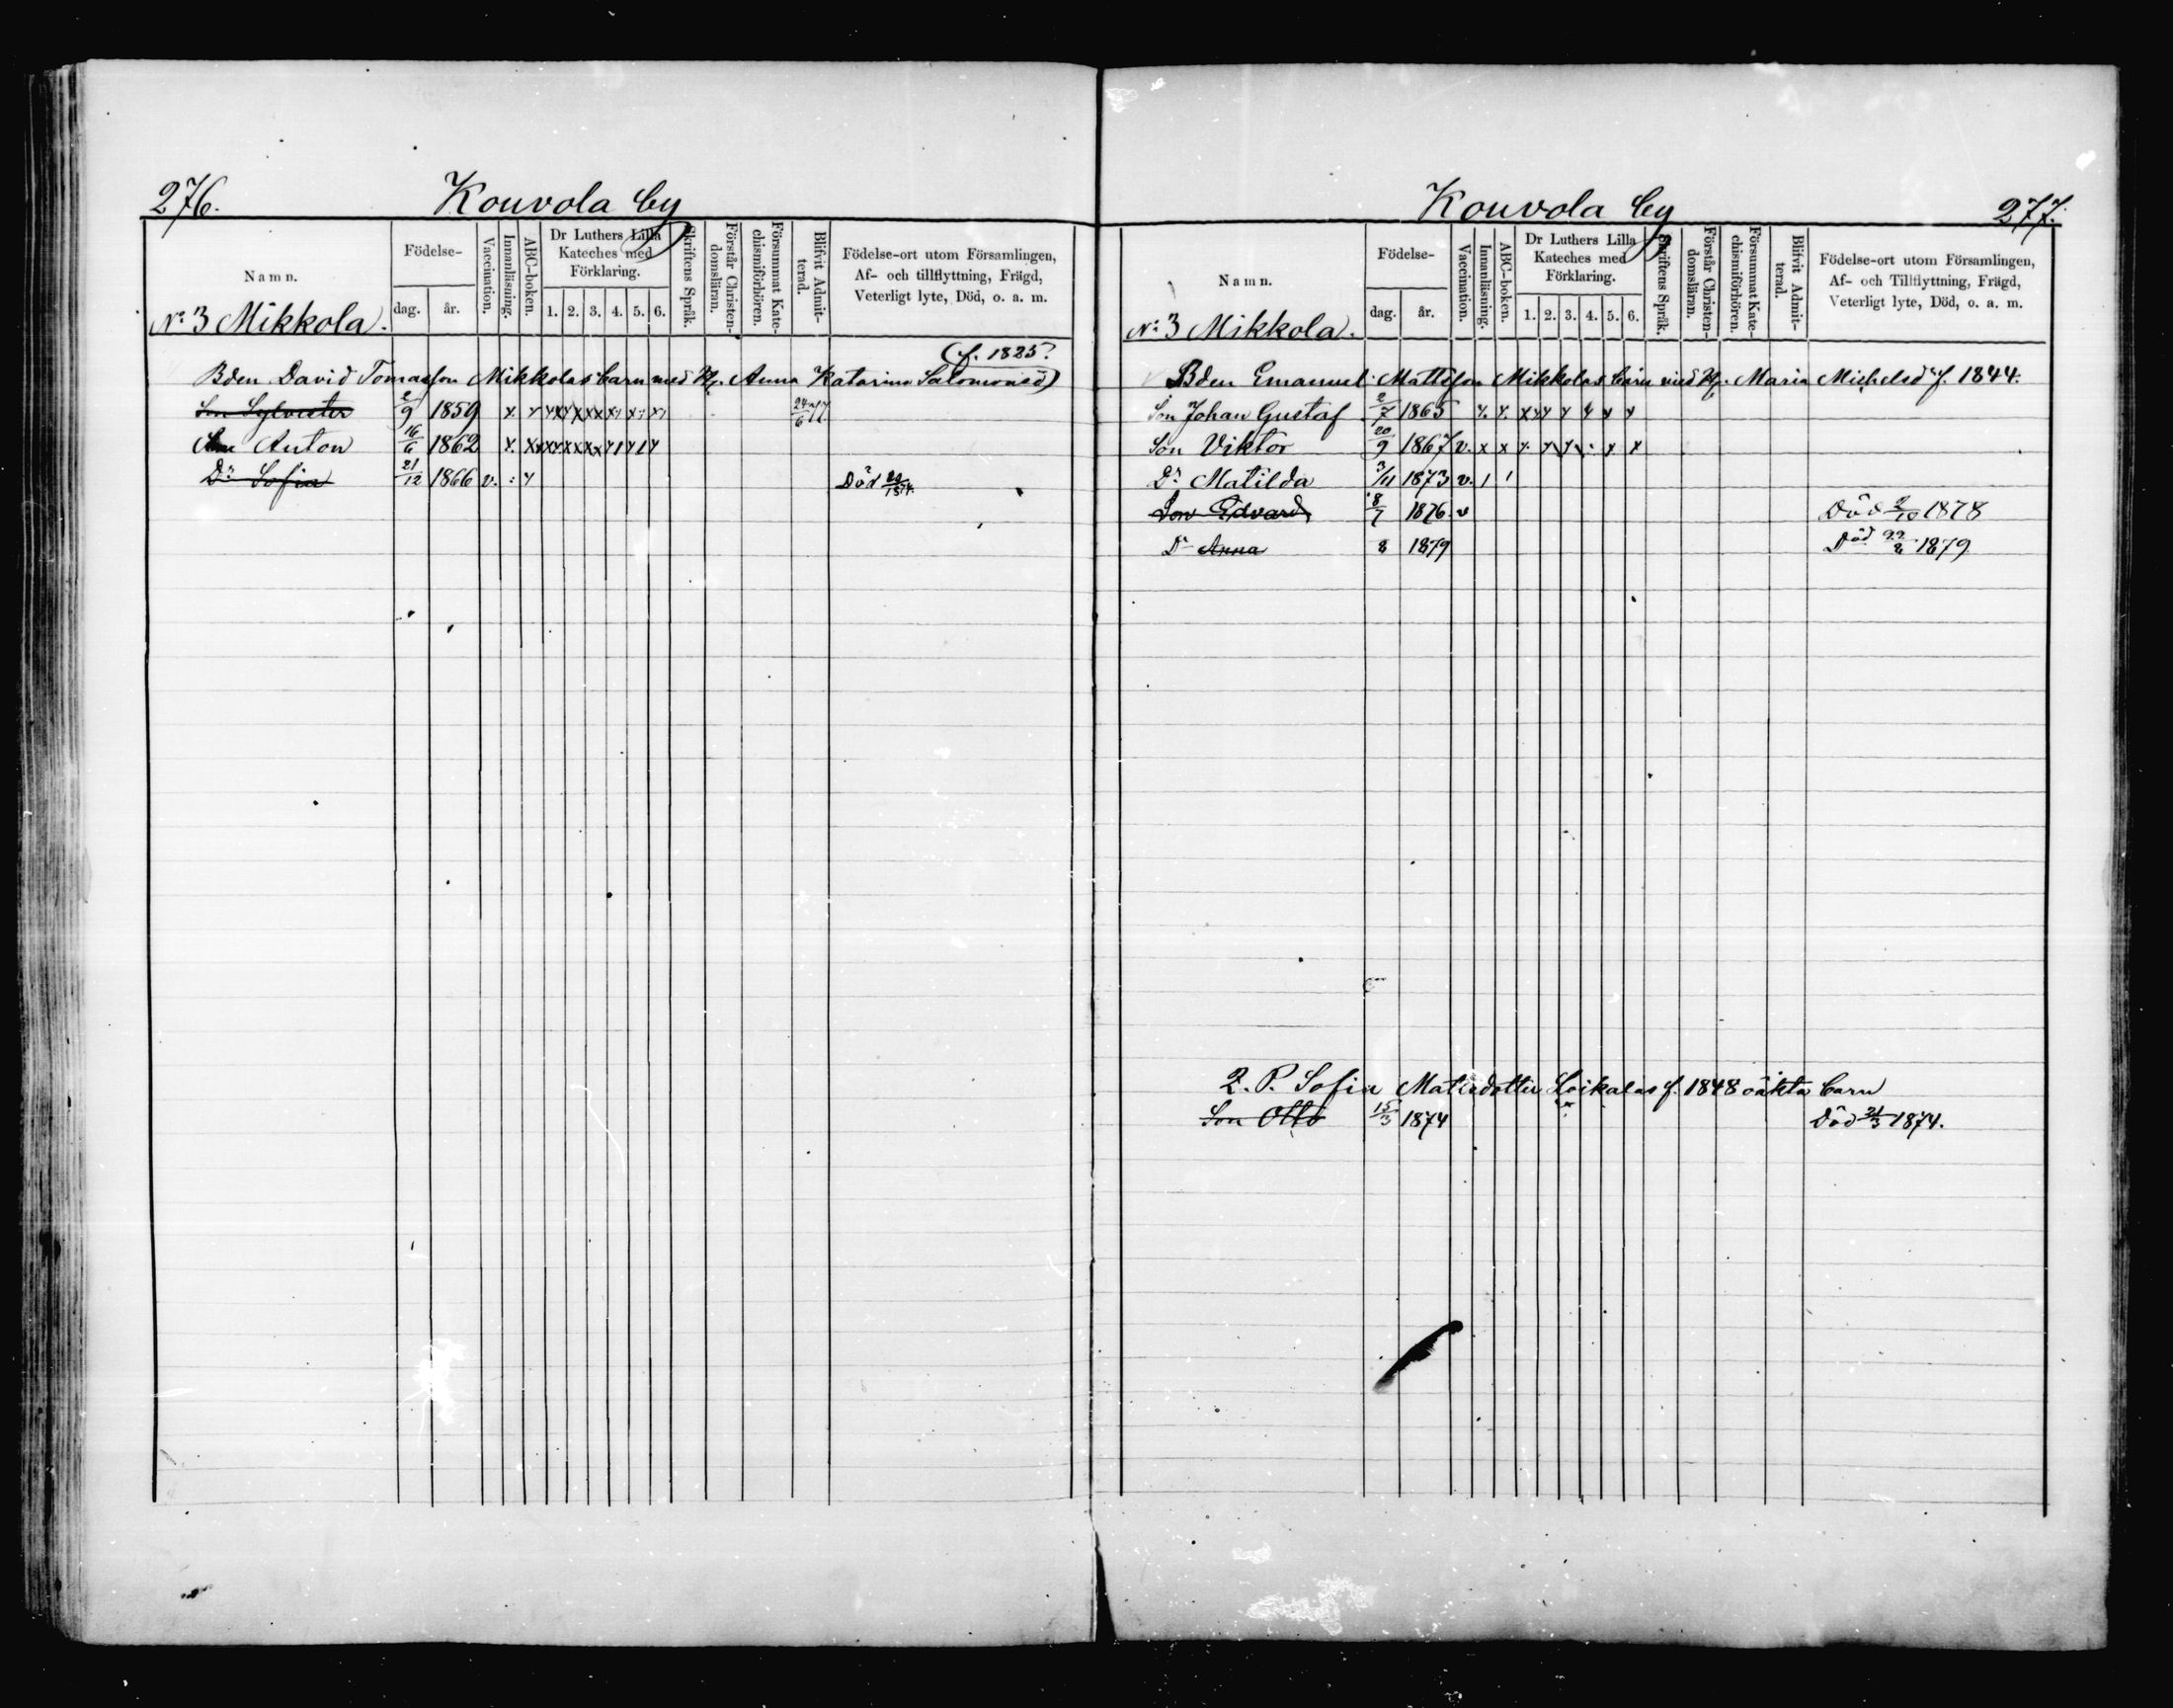 276.
Kouvola by
Namn.
Födelse-
dag.
år.
Vaccination.
Innanläsning.
ABC-boken.
Dr Luthers Lilla
Kateches med
Förklaring.
1. 2. 3. 4. 5. 6.
Skriftens Språk.
Förstår Christen-
domsläran.
Försummat Kate-
chismiförhören.
Blifvit Admit-
terad.
Födelse-ort utom Församlingen,
Af- och tillflyttning, Frägd,
Veterligt lyte, Död, o. a. m.
No 3 Mikkola.
(f. 1825.
Bden David Tomasson Mikkolas barn med H. Anna Katarina Salomonsd)
Son Sylvester 2/9 1859 x x x x x x x x x 24/6 77
Son Anton 16/6 1862 x x x x x x x x
Dr Sofia 21/12 1866 v.
Död
Kouvola by
277.
Namn.
Födelse-
dag.
år.
Vaccination.
Innanläsning.
ABC-boken.
Dr Luthers Lilla
Kateches med
Förklaring.
1. 2. 3. 4. 5. 6.
Skriftens Språk.
Förstår Christen-
domsläran.
Försummat Kate-
chismiförhören.
Blifvit Admit-
terad.
Födelse-ort utom Församlingen,
Af- och Tillflyttning, Frägd,
Veterligt lyte, Död, o. a. m.
No 3 Mikkola.
Bden Emanuel Mattsson Mikkolas barn med H. Maria Michelsd f. 1844.
Son Johan Gustaf 2/7 1865 x x x x x x x x
Son Viktor 20/9 1867 v. x x x x x x x
Dr Matilda 3/11 1873 v. 1 1
Son Edvard 8/7 1876 v Död 2/10 1878
Dr Anna 8 1879 Död 22/8 1879
2. P. Sofia Matsdotter Loikalas f. 1848 oäkta barn
Son Otto 15/3 1874 Död 21/3 1874.